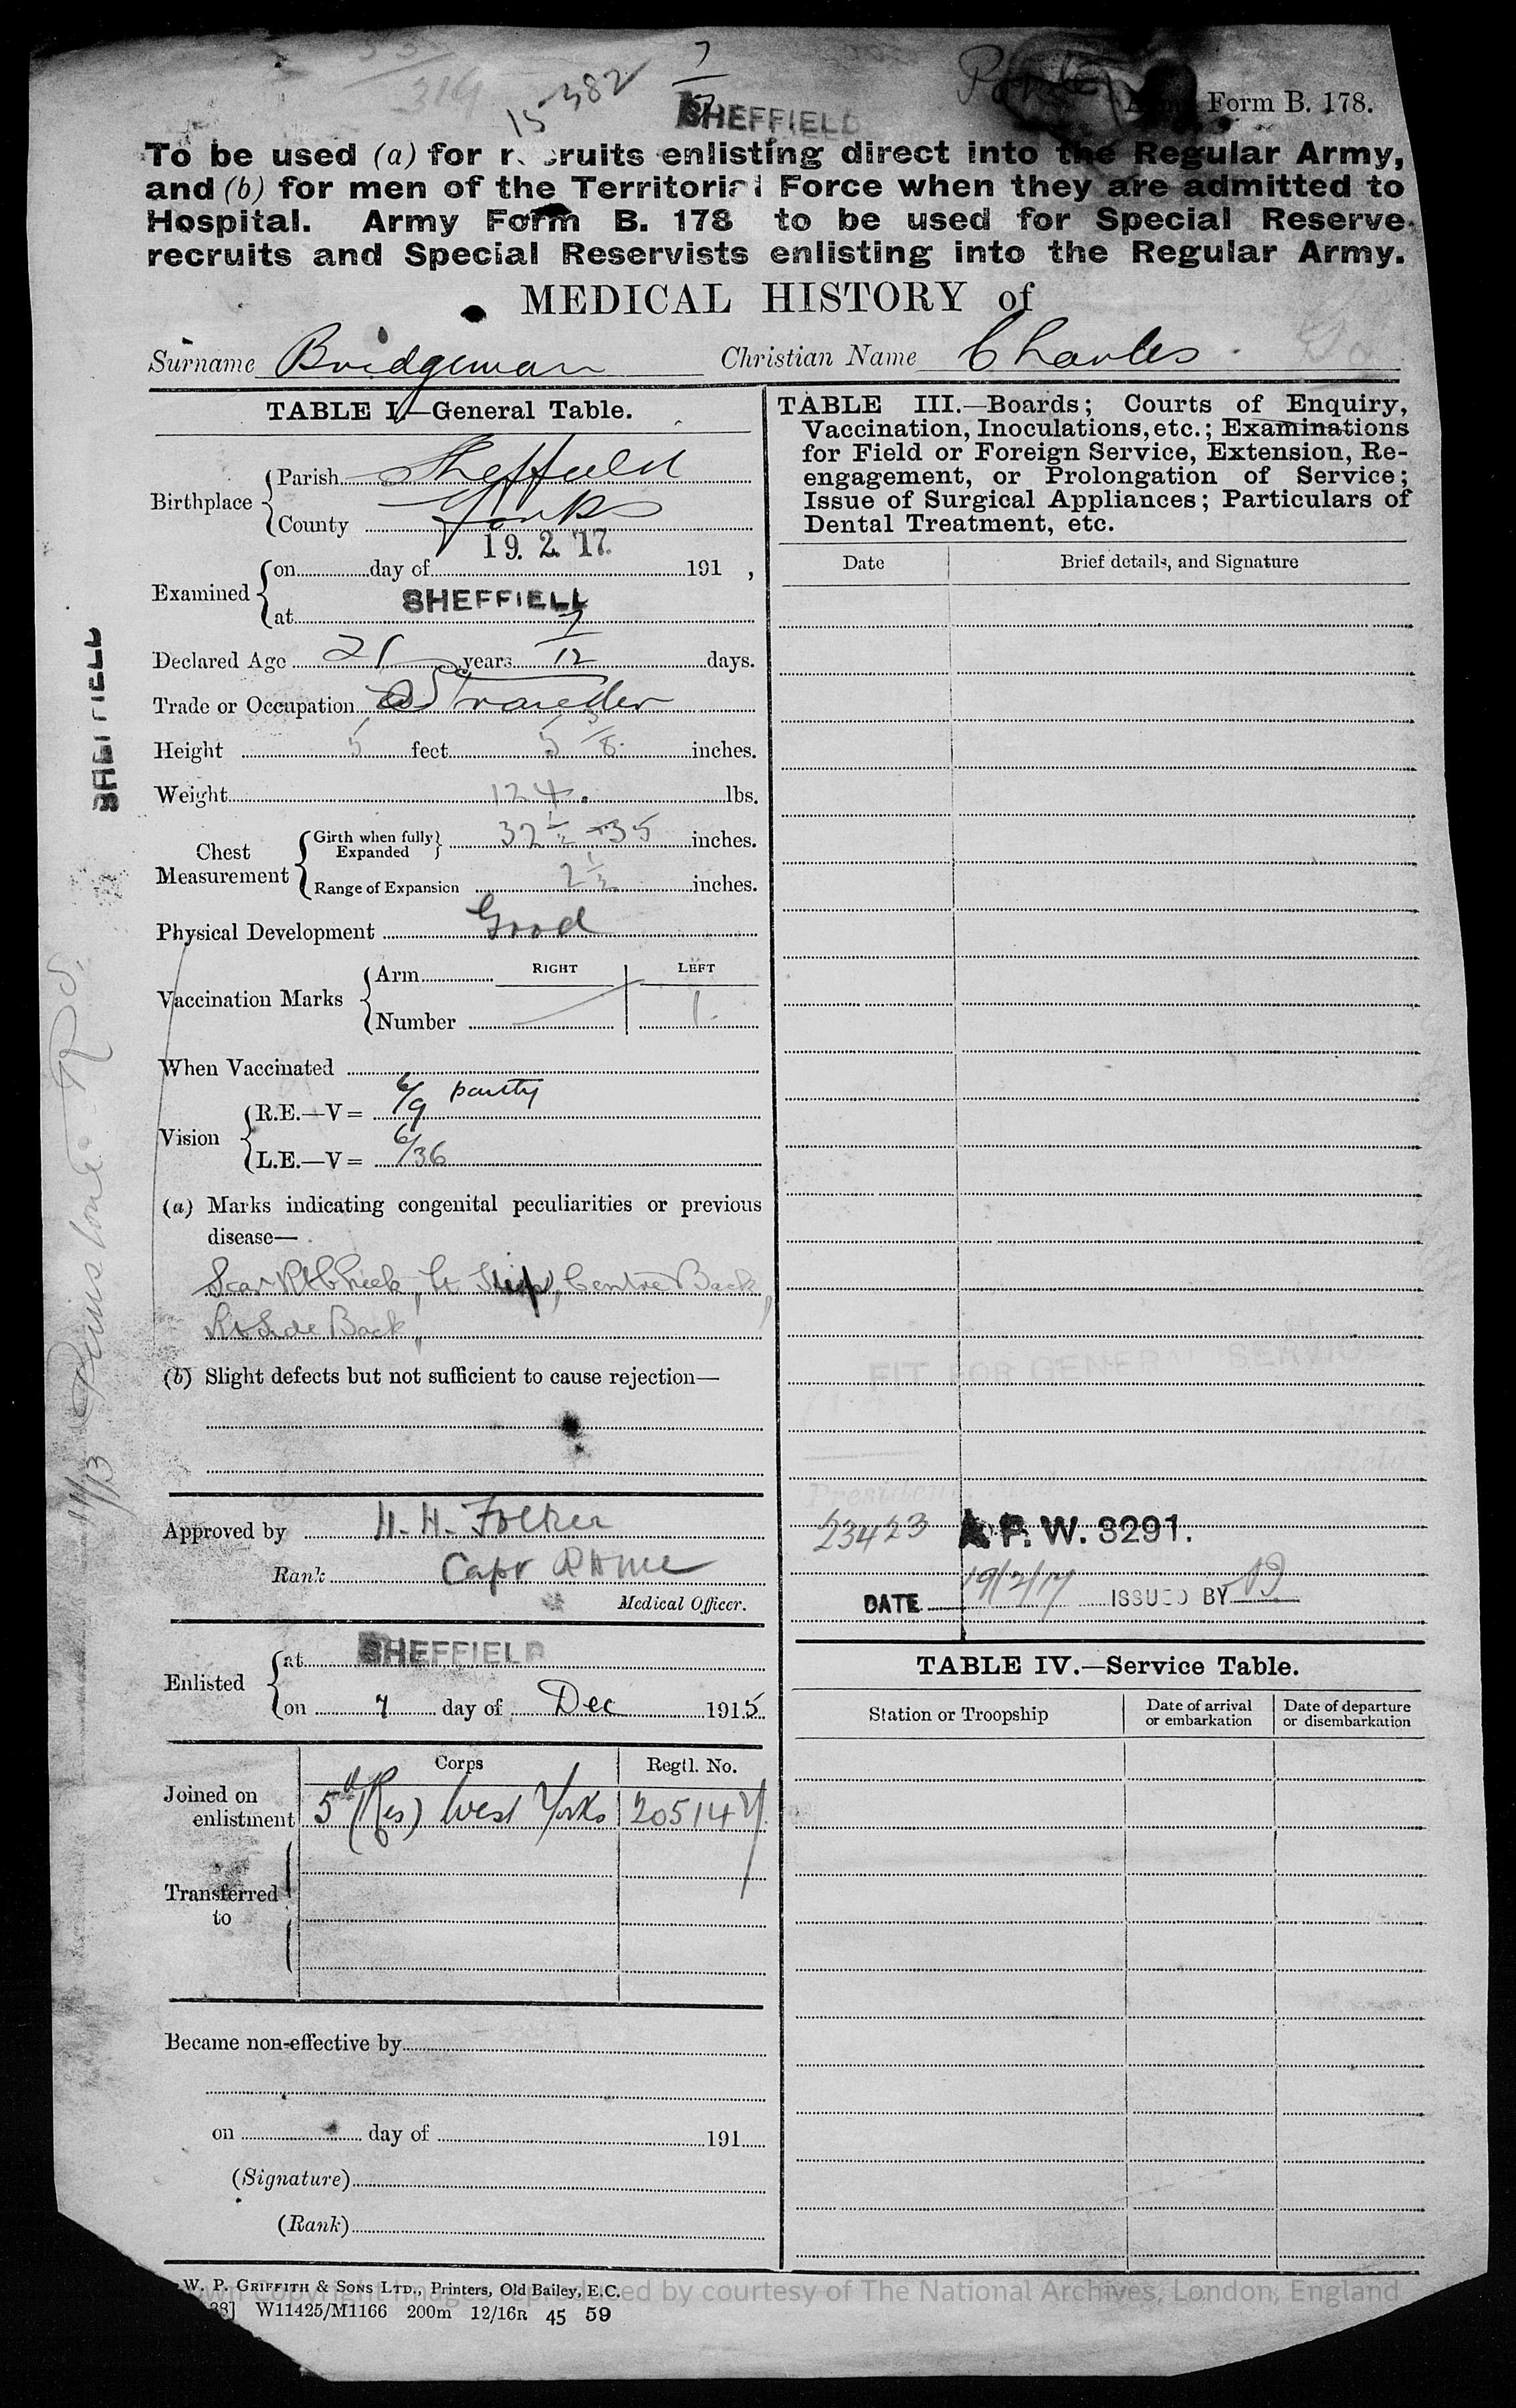 15 382
7
SHEFFIELD
Form B. 178.
To be used (a) for recruits enlisting direct into the Regular Army,
and (b) for men of the Territorial Force when they are admitted to
Hospital. Army Form B. 178 to be used for Special Reserve
recruits and Special Reservists enlisting into the Regular Army.
MEDICAL HISTORY of
Surname Bridgeman Christian Name Charles
TABLE I.—General Table.
Birthplace Parish Sheffield
County Yorks
19. 2. 17.
Examined on day of 191 ,
at SHEFFIELD
Declared Age 21 years 7/12 days.
Trade or Occupation Traveller
Height 5 feet 5 3/8 inches.
Weight 124 lbs.
Chest Measurement Girth when fully Expanded 32 1/2 - 35 inches.
Range of Expansion 2 1/2 inches.
Physical Development Good
Vaccination Marks Arm RIGHT LEFT
Number 1.
When Vaccinated
Vision R.E.—V = 6/9 partly
L.E.—V = 6/36
(a) Marks indicating congenital peculiarities or previous
disease—
Scar Rt Cheek, Lt Centre Back,
Rt Side Back,
(b) Slight defects but not sufficient to cause rejection—
Approved by H. H. Folker
Rank Capt RAMC
Medical Officer.
Enlisted at SHEFFIELD
on 7 day of Dec 1915
Corps Regtl. No.
Joined on
enlistment 5th (Res) West Yorks 205147
Transferred
to
Became non-effective by
on day of 191
(Signature)
(Rank)
SHEFFIELD
TABLE III.—Boards; Courts of Enquiry,
Vaccination, Inoculations, etc.; Examinations
for Field or Foreign Service, Extension, Re-
engagement, or Prolongation of Service;
Issue of Surgical Appliances; Particulars of
Dental Treatment, etc.
Date Brief details, and Signature
FIT FOR GENERAL SERVICE
President, Med.
23423 A.F. W. 3291.
DATE 19/2/17 ISSUED BY
TABLE IV.—Service Table.
Station or Troopship Date of arrival or embarkation Date of departure or disembarkation
W. P. GRIFFITH & SONS LTD., Printers, Old Bailey, E.C.
38] W11425/M1166 200m 12/16R 45 59
images reproduced by courtesy of The National Archives, London, England